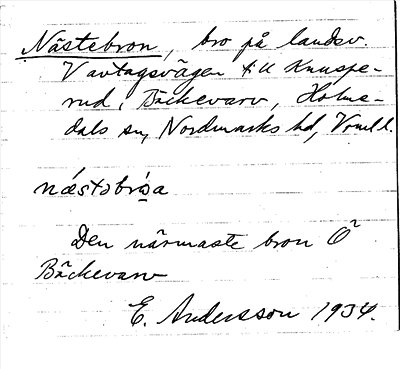 Nästebron, bro på landsv.
V avtagsvägen till Knuspe-
rud i Bäckevarv, Holme-
dals sn, Nordmarks hd, Vrml.
næstəbróa
Den närmaste bron Ö
Bäckevarv
E. Andersson 1934.